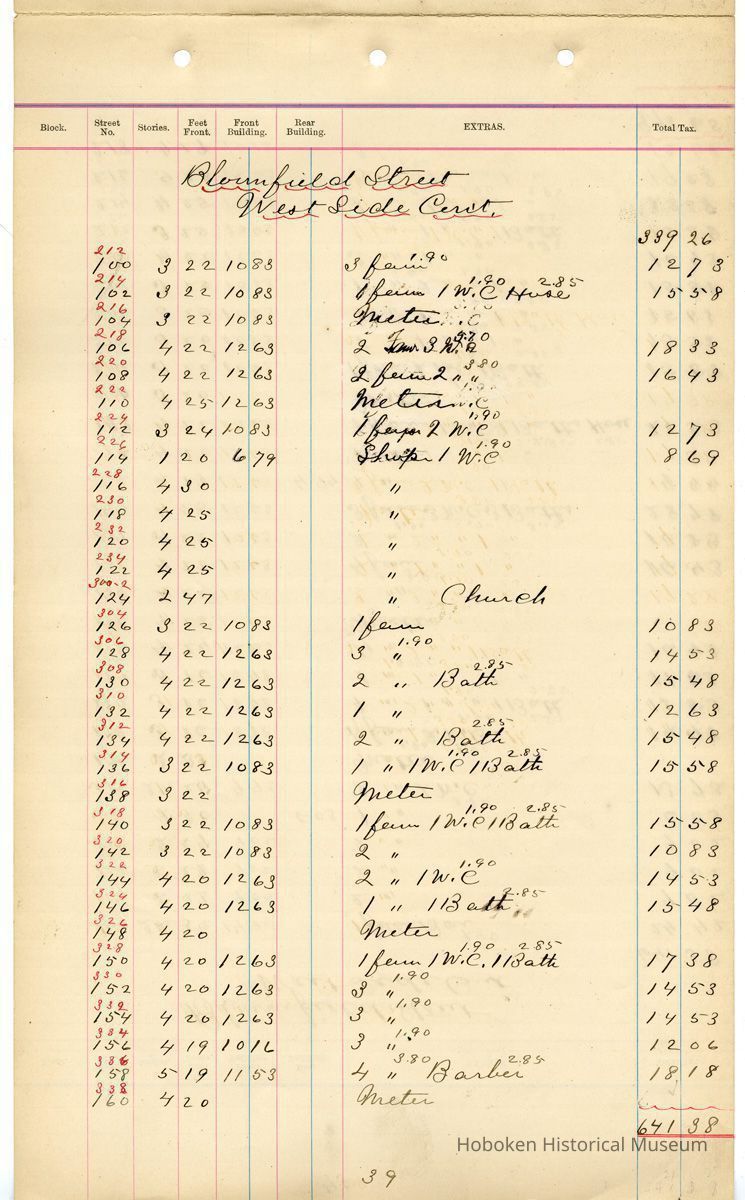 Block. Street No. Stories. Feet Front. Front Building. Rear Building. EXTRAS. Total Tax.
Bloomfield Street
West Side Cont.
339 26
212
100 3 22 10 83 3 fam 1.90 12 73
214
102 3 22 10 83 1 fam 1 W.C 1.90 Hose 2.85 15 58
216
104 3 22 10 83 Meter W.C
218
106 4 22 12 63 2 Fam 3 W.C 5.70 18 33
220
108 4 22 12 63 2 fam 2 " " 3.80 16 43
222
110 4 25 12 63 Meter W.C
224
112 3 24 10 83 1 fam 2 W.C 1.90 12 73
226
114 1 20 6 79 Shop 1 W.C 1.90 8 69
228
116 4 30 "
230
118 4 25 "
232
120 4 25 "
234
122 4 25 "
300-2
124 2 47 " Church
304
126 3 22 10 83 1 fam 10 83
306
128 4 22 12 63 3 " 1.90 14 53
308
130 4 22 12 63 2 " Bath 2.85 15 48
310
132 4 22 12 63 1 " 12 63
312
134 4 22 12 63 2 " Bath 2.85 15 48
314
136 3 22 10 83 1 " 1 W.C 1.90 1 Bath 2.85 15 58
316
138 3 22 Meter
318
140 3 22 10 83 1 fam 1 W.C 1.90 1 Bath 2.85 15 58
320
142 3 22 10 83 2 " 10 83
322
144 4 20 12 63 2 " 1 W.C 1.90 14 53
324
146 4 20 12 63 1 " 1 Bath 2.85 15 48
326
148 4 20 Meter
328
150 4 20 12 63 1 fam 1 W.C. 1.90 1 Bath 2.85 17 38
330
152 4 20 12 63 3 " 1.90 14 53
332
154 4 20 12 63 3 " 1.90 14 53
334
156 4 19 10 16 3 " 1.90 12 06
336
158 5 19 11 53 4 " 3.80 Barber 2.85 18 18
338
160 4 20 Meter
641 38
Hoboken Historical Museum
39